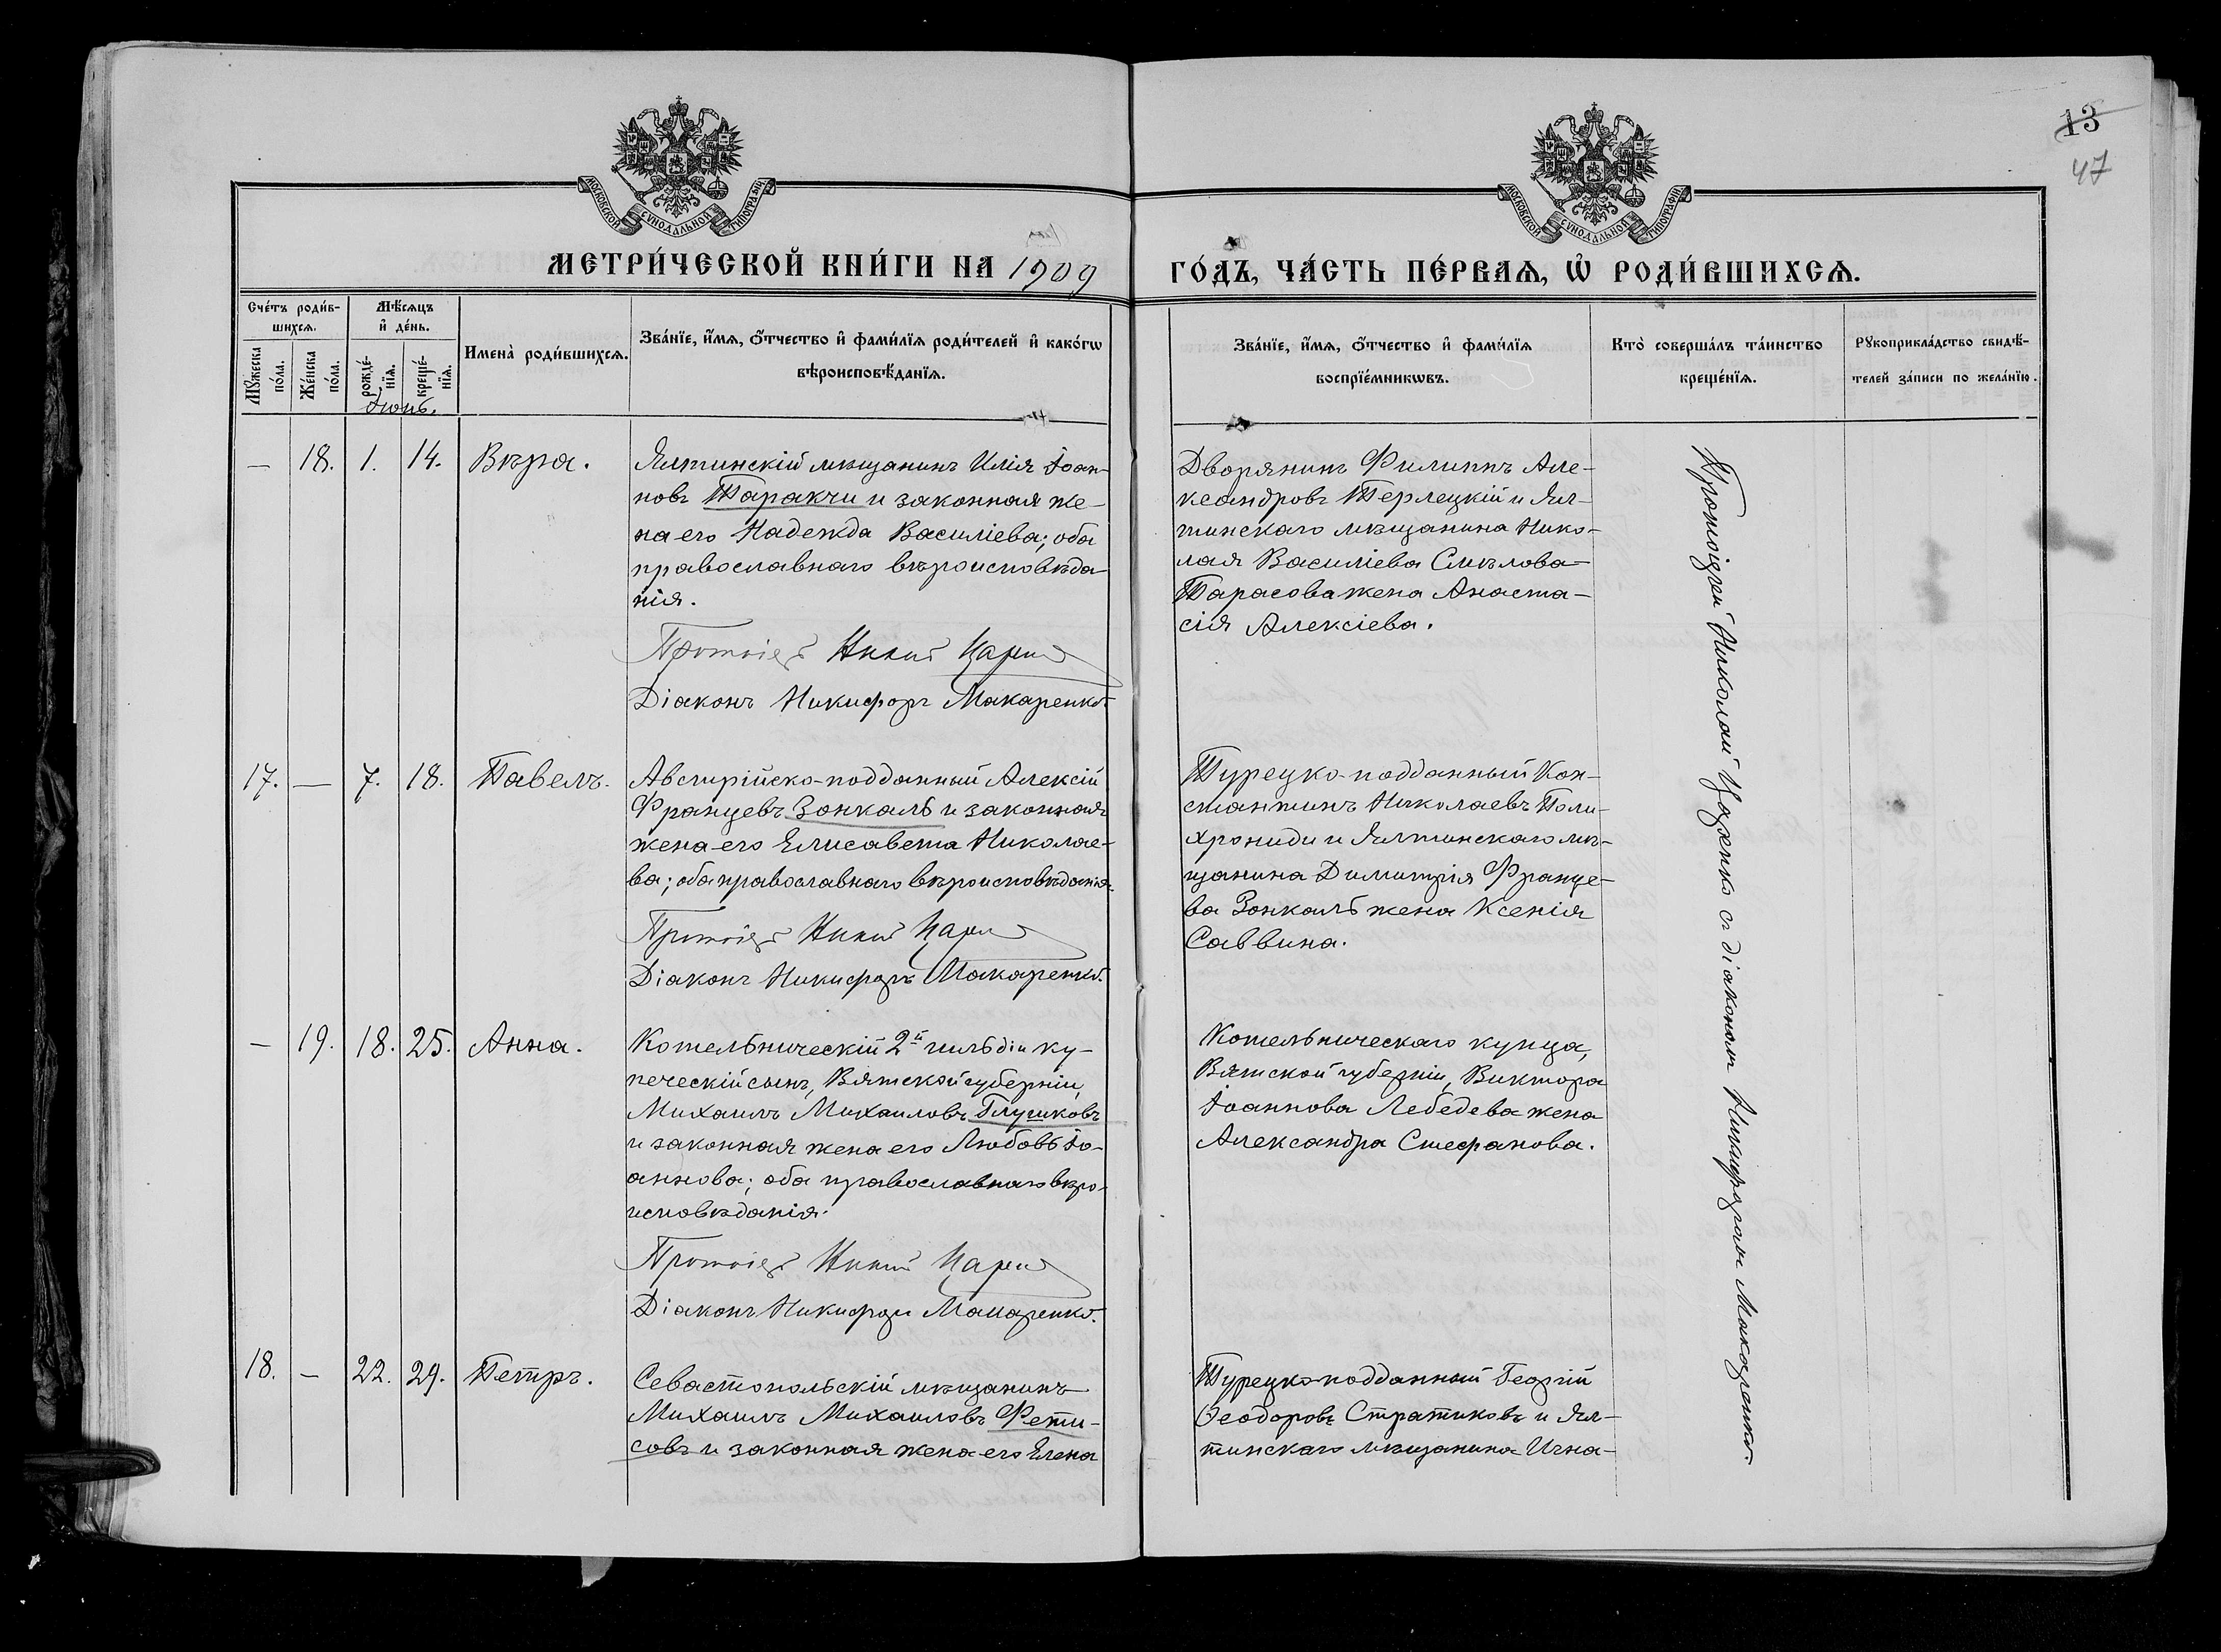 13
47
МОСКОВСКОЙ СѴНОДАЛЬНОЙ ТИПОГРАФІИ
МОСКОВСКОЙ СѴНОДАЛЬНОЙ ТИПОГРАФІИ
МЕТРИ́ЧЕСКОЙ КНИ́ГИ НА 1909
ГО́ДЪ, ЧА́СТЬ ПЕ́РВАѦ, Ѡ҆ РОДИ́ВШИХСѦ.
Сче́тъ роди́в-
шихсѧ.
Мѣ́сѧцъ
и҆ де́нь.
Мꙋ́жеска
по́ла.
Же́нска
по́ла.
рожде́-
нїѧ.
креще́-
нїѧ.
Имена̀ роди́вшихсѧ.
Зва́нїе, и҆́мѧ, ѻ҆́тчество и҆ фами́лїѧ роди́телей и҆ како́гѡ
вѣроисповѣ́данїѧ.
Зва́нїе, и҆́мѧ, ѻ҆́тчество и҆ фами́лїѧ
воспрїе́мникѡвъ.
Кто̀ соверша́лъ та́инство
креще́нїѧ.
Рꙋкоприкла́дство свидѣ́-
телей за́писи по жела́нїю.
Іюнь.
— 18. 1. 14. Вѣра.
Ялтинскій мѣщанинъ Илія Іоан-
новъ Таракчи и законная же-
на его Надежда Василіева; оба
православнаго вѣроисповѣда-
нія.
Протоіер
Діаконъ Никифоръ Макаренко
Дворянинъ Филиппъ Але-
ксандровъ Терлецкій и Ял-
тинскаго мѣщанина Нико-
лая Василіева Смѣлова-
Тарасова жена Анаста-
сія Алексіева.
17. — 7. 18. Павелъ.
Австрійско-подданный Алексій
Францевъ Зонкаль и законная
жена его Елисавета Николае-
ва; оба православнаго вѣроисповѣданія.
Протоіер
Діаконъ Никифоръ Макаренко.
Турецко-подданный Кон-
стантинъ Николаевъ Поли-
хрониди и Ялтинскаго мѣ-
щанина Димитрія Францe-
ва Зонкаль жена Ксенія
Саввина.
— 19. 18. 25. Анна.
Котельническій 2й гильдіи ку-
печескій сынъ, Вятской губерніи,
Михаилъ Михаиловъ Глушковъ
и законная жена его Любовь Іо-
аннова; оба православнаго вѣро-
исповѣданія.
Протоіер
Діаконъ Никифоръ Макаренко.
Котельническаго купца,
Вятской губерніи, Виктора
Іоаннова Лебедева жена
Александра Стефанова.
18. — 22. 29. Петръ.
Севастопольскій мѣщанинъ
Михаилъ Михаиловъ Фети-
совъ и законная жена его Елена
Турецко-подданный Георгій
Ѳеодоровъ Стратиковъ и Ял-
тинскаго мѣщанина Игна-
Протоіерей Николай Царенко съ діакономъ Никифоромъ Макаренко.